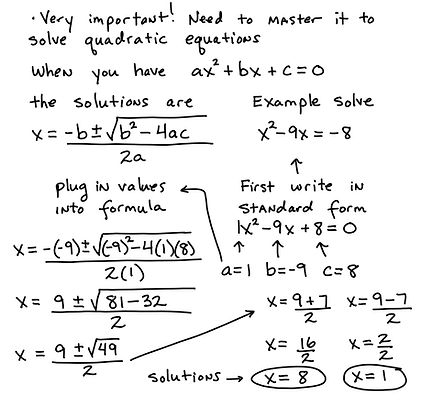 · Very important! Need to master it to
solve quadratic equations
When you have ax² + bx + c = 0
the solutions are
x = -b ± √(b² - 4ac) / 2a
Example Solve
x² - 9x = -8
↑
First write in
standard form
1x² - 9x + 8 = 0
↑ ↑ ↑
a = 1 b = -9 c = 8
plug in values
into formula
x = -(-9) ± √((-9)² - 4(1)(8)) / 2(1)
x = 9 ± √(81 - 32) / 2
x = 9 ± √49 / 2
x = 9 + 7 / 2 x = 9 - 7 / 2
x = 16/2 x = 2/2
solutions → x = 8 x = 1